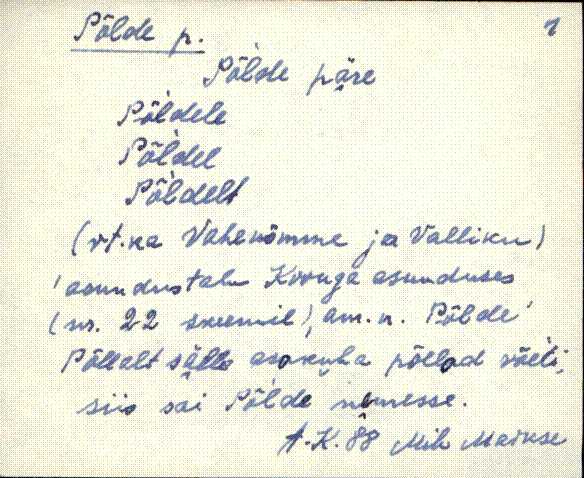 Põlde p. 1
Põlde päre
Põldele
Põldel
Põldelt
(vt. ka Vahenõmme ja Valliku)
'asundustalu Koonga asunduses
(nr. 22 skeemil), am. n. Põlde'
Põllalt sälla asokuha põllad võeti,
siis sai Põlde nimesse.
A.K. 88 Mih Maikse